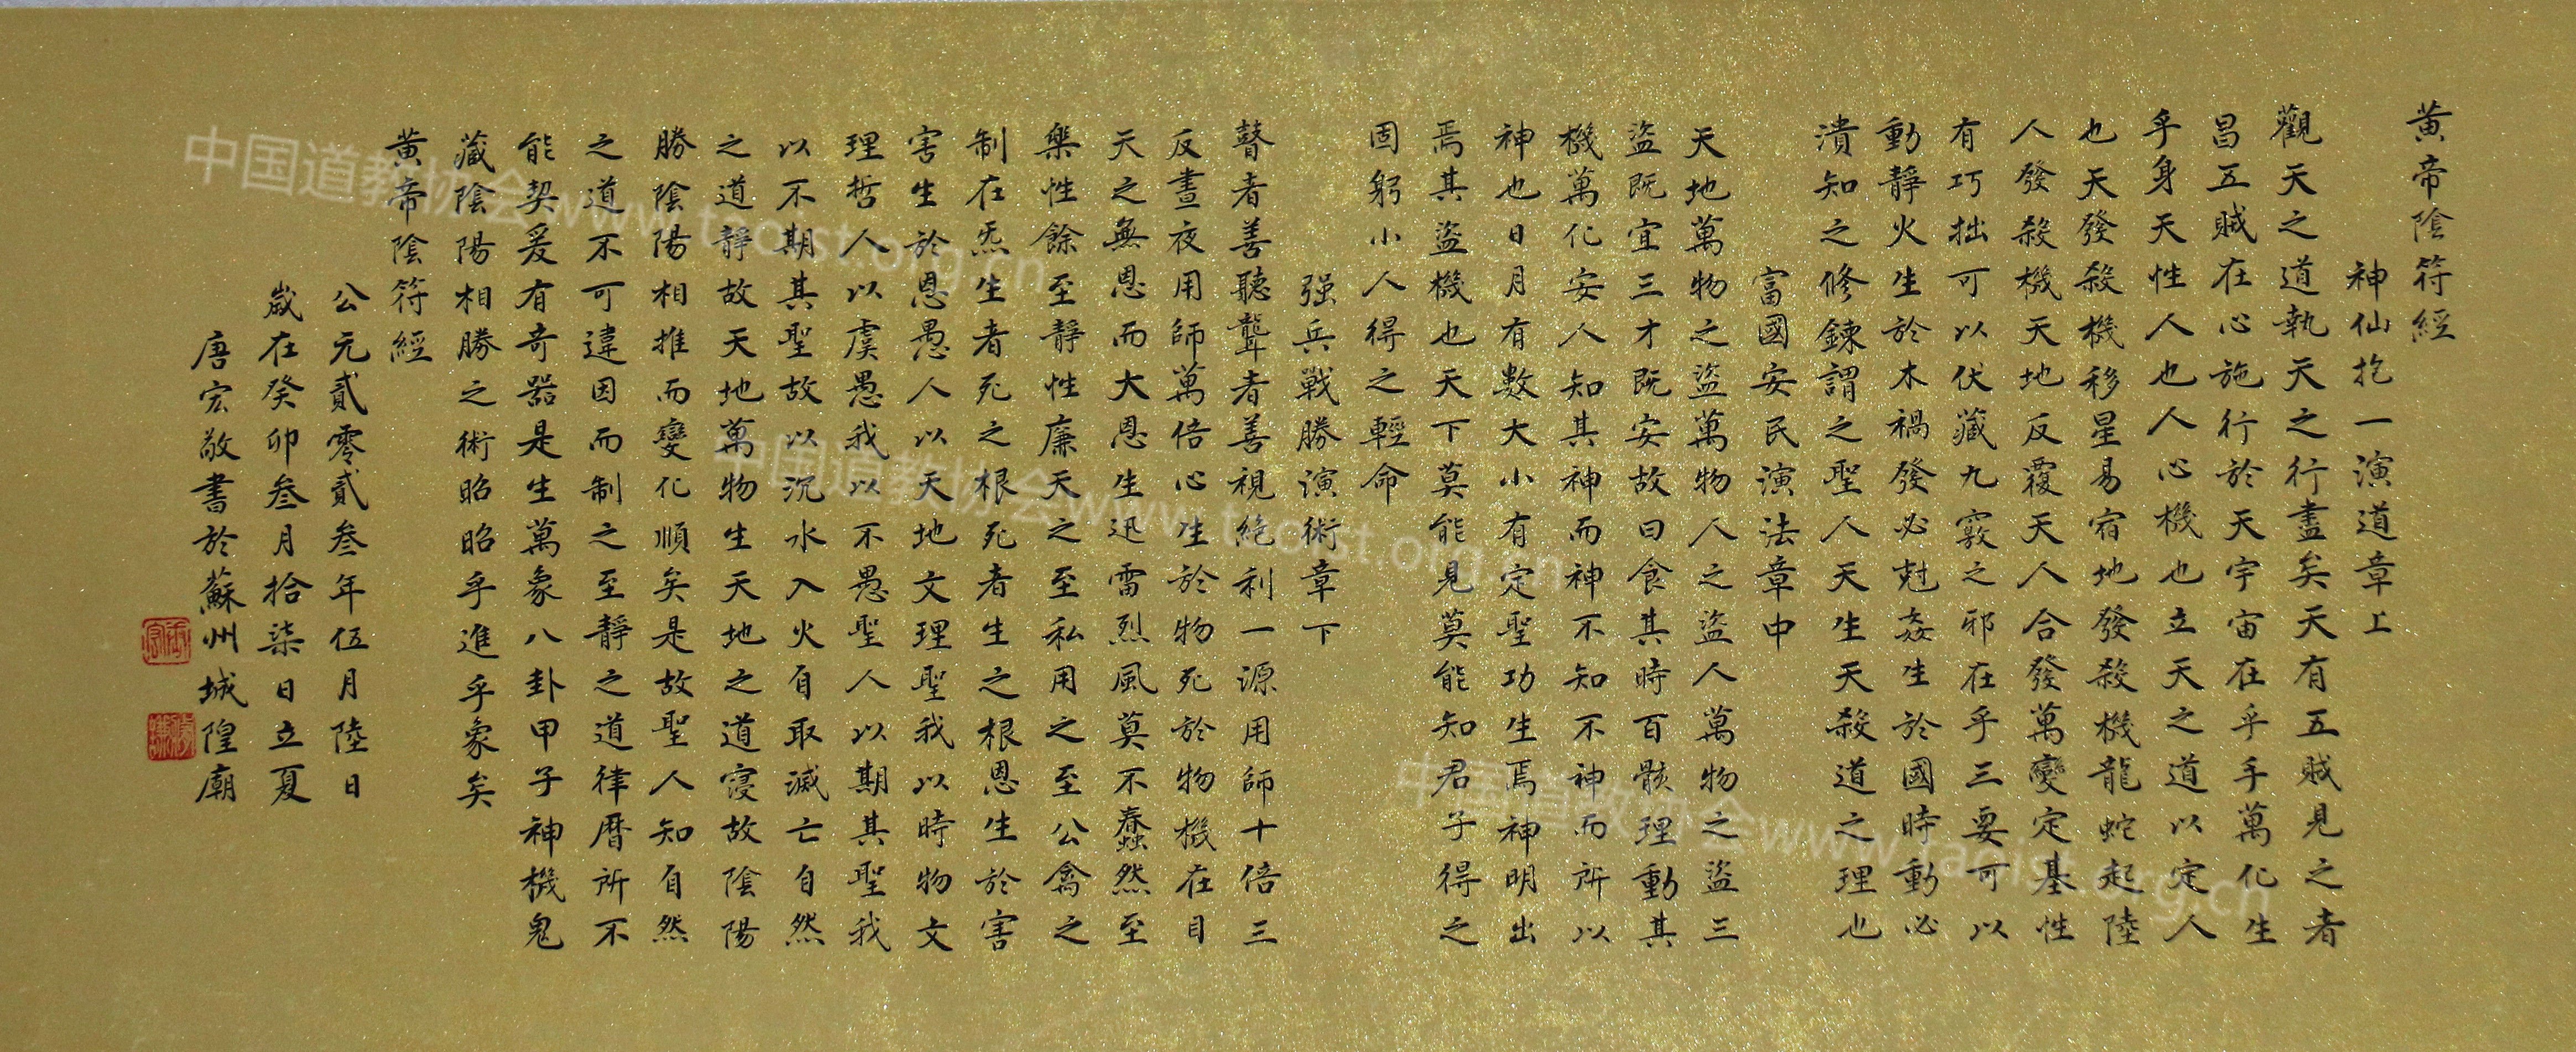 黃帝陰符經
神仙抱一演道章上
觀天之道執天之行盡矣天有五賊見之者
昌五賊在心施行於天宇宙在乎手萬化生
乎身天性人也人心機也立天之道以定人
也天發殺機移星易宿地發殺機龍蛇起陸
人發殺機天地反覆天人合發萬變定基性
有巧拙可以伏藏九竅之邪在乎三要可以
動靜火生於木禍發必尅姦生於國時動必
潰知之修鍊謂之聖人天生天殺道之理也
富國安民演法章中
天地萬物之盜萬物人之盜人萬物之盜三
盜既宜三才既安故曰食其時百骸理動其
機萬化安人知其神而神不知不神而所以
神也日月有數大小有定聖功生焉神明出
焉其盜機也天下莫能見莫能知君子得之
固躬小人得之輕命
强兵戰勝演術章下
瞽者善聽聾者善視絶利一源用師十倍三
反晝夜用師萬倍心生於物死於物機在目
天之無恩而大恩生迅雷烈風莫不蠢然至
樂性餘至靜性廉天之至私用之至公禽之
制在炁生者死之根死者生之根恩生於害
害生於恩愚人以天地文理聖我以時物文
理哲人以虞愚我以不愚聖人以期其聖我
以不期其聖故以沉水入火自取滅亡自然
之道靜故天地萬物生天地之道寖故陰陽
勝陰陽相推而變化順矣是故聖人知自然
之道不可違因而制之至靜之道律曆所不
能契爰有奇器是生萬象八卦甲子神機鬼
藏陰陽相勝之術昭昭乎進乎象矣
黃帝陰符經
公元貳零貳叁年伍月陸日
歲在癸卯叁月拾柒日立夏
唐宏敬書於蘇州城隍廟
中国道教协会www.taoist.org.cn
中国道教协会www.taoist.org.cn
中国道教协会www.taoist.org.cn